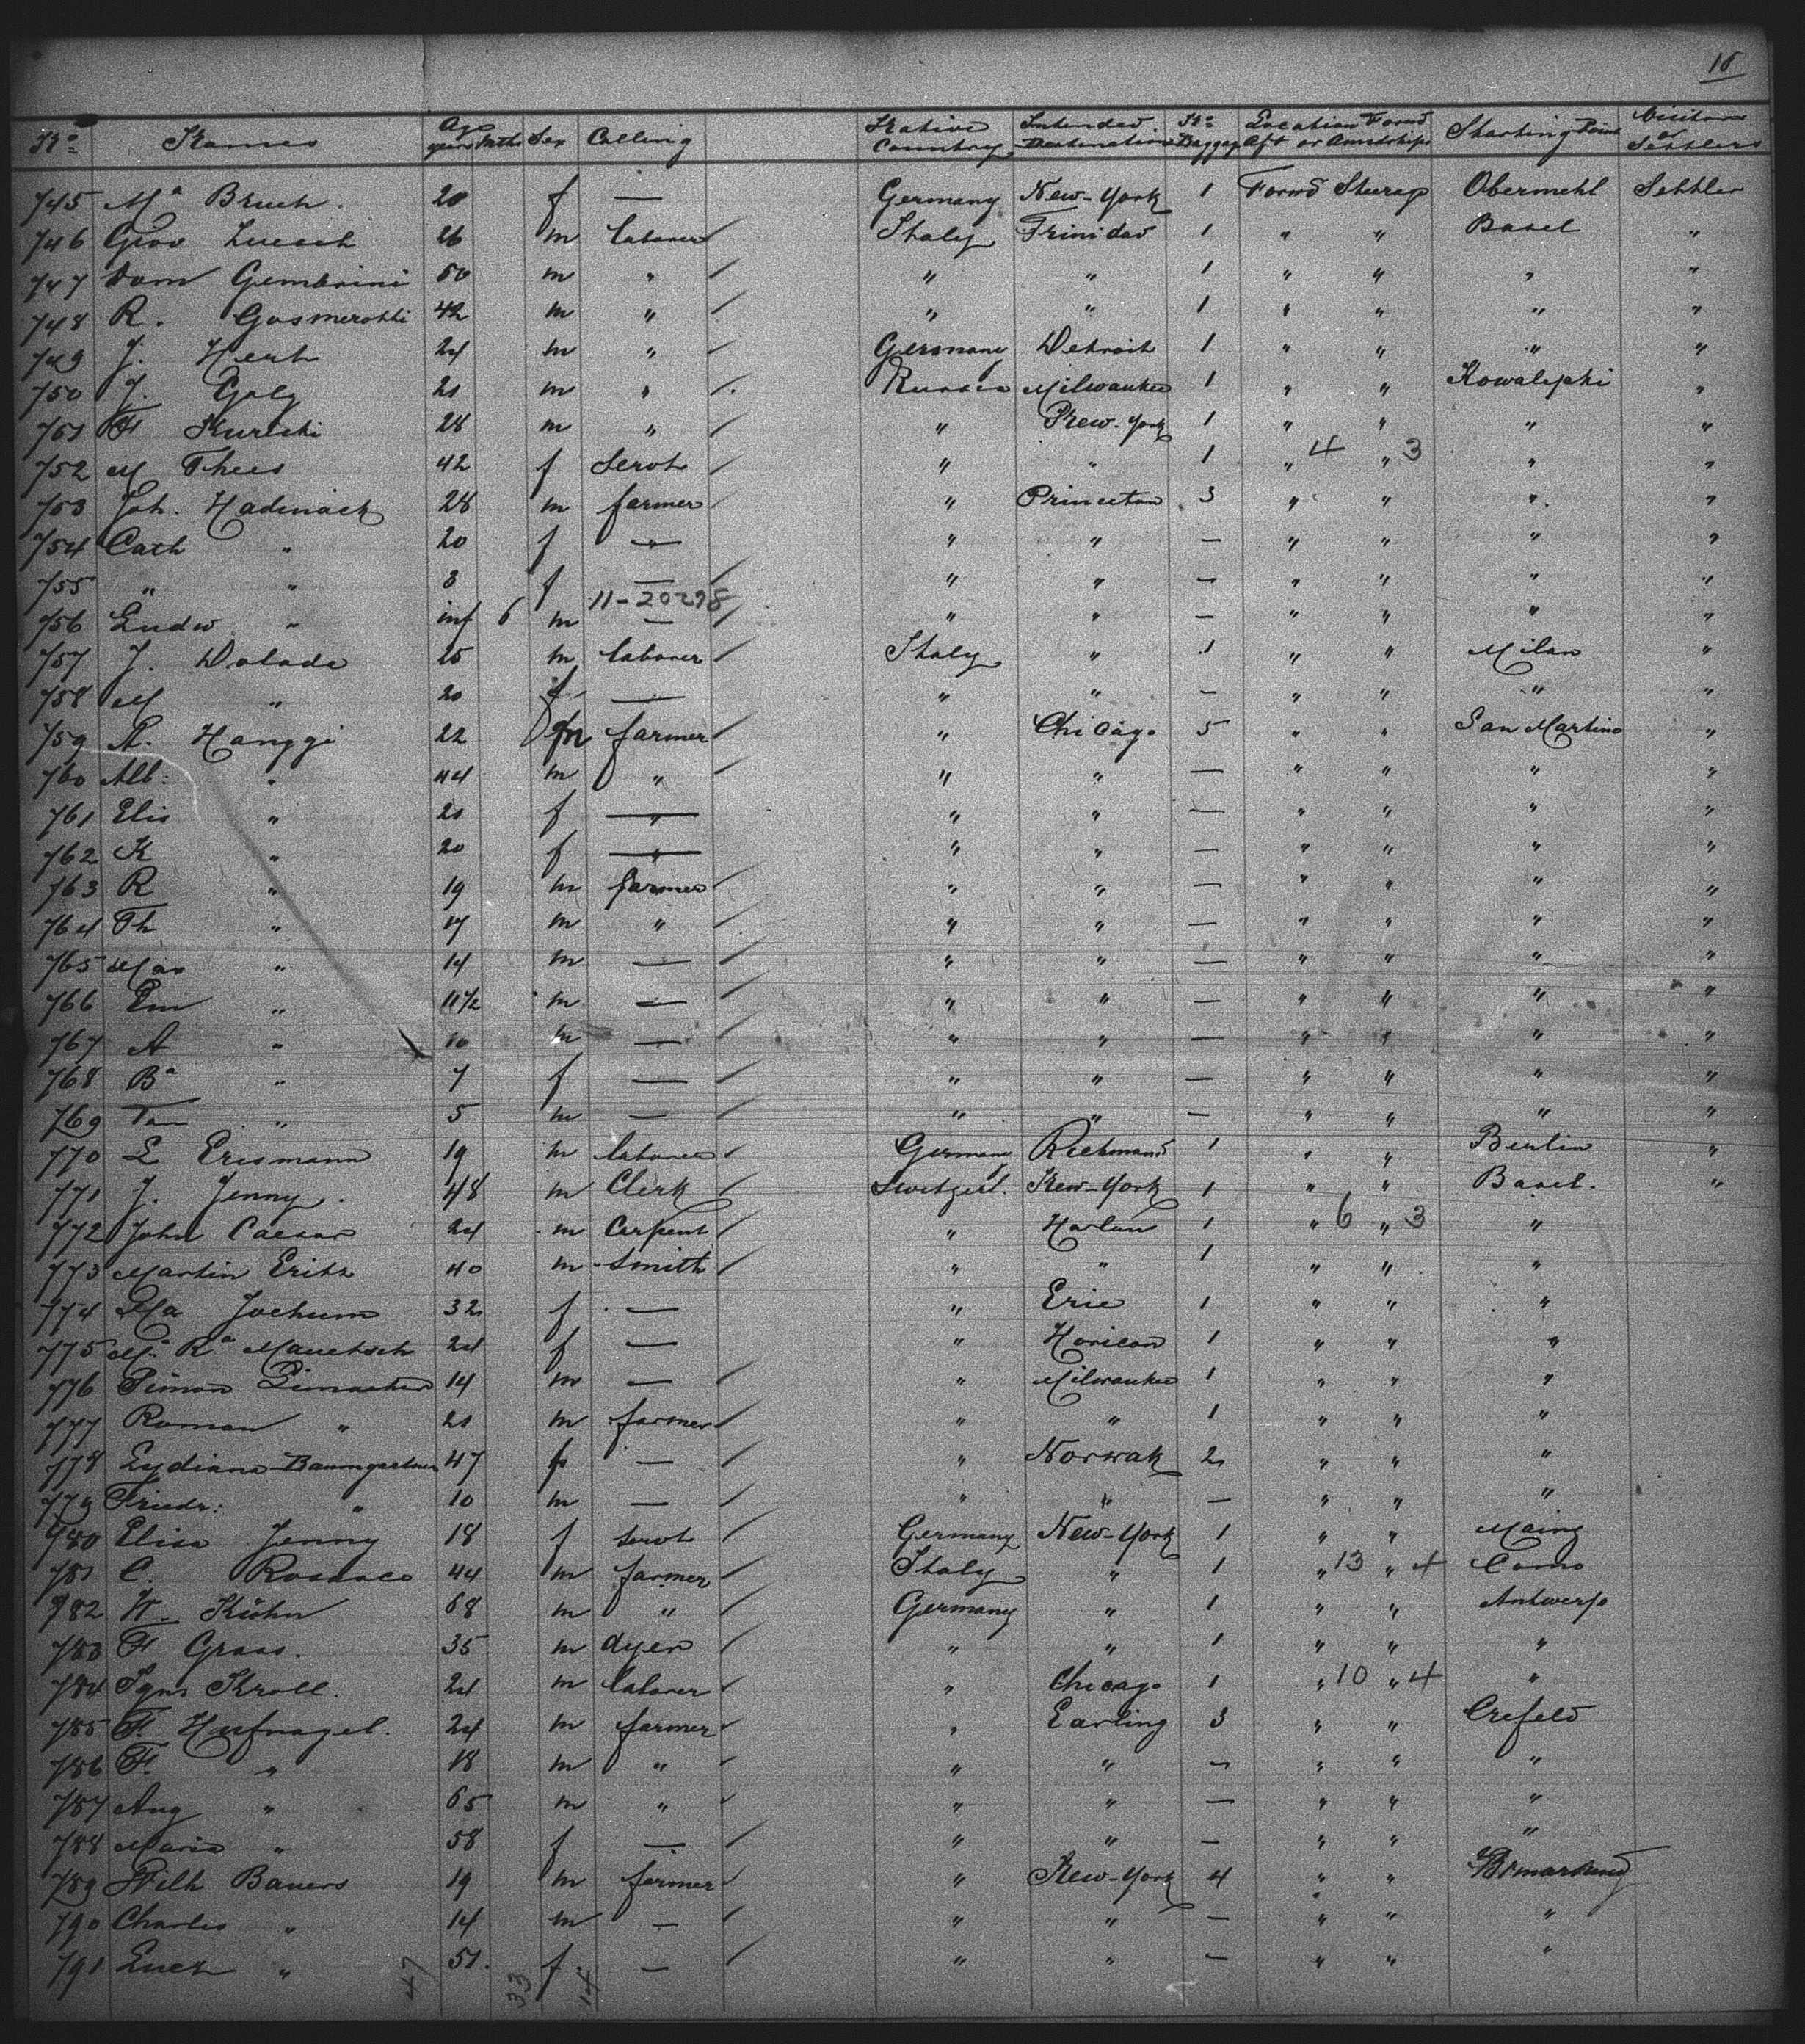 16
No Names Age years Mths Sex Calling Native Country Intended Destination No Baggag Location Forwd Aft or Amidships Starting Point Visitors or Settlers
745 Ma Bruch. 20 f — Germany New-York 1 Forwd Steerage Obermehl Settler
746 Giov 26 m laborer Italy Trinidad 1 " " Basel "
747 Dom Gembrini 50 m " " " 1 " " " "
748 R. Gosmerotti 42 m " " " 1 " " " "
749 J. Hert 24 m " Germany Detroit 1 " " " "
750 J. Golz 21 m " Russia Milwaukee 1 " " Kowalejski "
751 F Kureski 28 m " " New-York 1 " " " "
752 M Thees 42 f Servt " " 1 " 4 " 3 " "
753 Joh. Hadinack 28 m farmer " Princeton 3 " " " "
754 Cath " 20 f — " " — " " " "
755 " " 3 f — " " — " " " "
11-20298
756 Ludw " inf 6 m — " " — " " " "
757 J. Dolade 25 m laborer Italy " 1 " " Milan "
758 M " 20 f — " " — " " " "
759 A. Hanggi 22 m farmer " Chicago 5 " " San Martino "
760 Alb: " 44 m " " " — " " " "
761 Elis " 21 f — " " — " " " "
762 K " 20 f — " " — " " " "
763 R " 19 m farmer " " — " " " "
764 Th " 17 m " " " — " " " "
765 Max " 14 m — " " — " " " "
766 Em " 11 1/2 m — " " — " " " "
767 A " 10 m — " " — " " " "
768 Ba " 7 f — " " — " " " "
769 " 5 m — " " — " " " "
770 E Erismann 19 m laborer Germany Richmond 1 " " Berlin "
771 J. Jenny. 48 m Clerk Switzerl. New-York 1 " " Basel. "
772 John Caesar 24 m Carpent " Harlan 1 " 6 " 3 "
773 Martin Eritz 40 m Smith " " 1 " " "
774 Ma Jochum 32 f — " Erie 1 " " "
775 Ma Ra Mauetsch 24 f — " Horicon 1 " " "
776 Simon 14 m — " Milwaukee 1 " " "
777 Roman " 21 m farmer " " 1 " " "
778 Lydiana Baumgartner 47 f — " Norwak 2 " " "
779 Friedr: " 10 m — " " — " " "
780 Elisa Jenny 18 f servt Germany New-York 1 " " Mainz
781 C. 44 m farmer Italy " 1 " 13 " 4 Como
782 W. Kühn 68 m " Germany " 1 " " Antwerp
783 F Graas. 35 m dyer " " 1 " " "
784 Igns Kroll. 24 m laborer " Chicago 1 " 10 " 4 "
785 F. Hufnagel. 24 m farmer " Earling 3 " " Crefeld
786 F. " 18 m " " " — " " "
787 Aug " 65 m " " " — " " "
788 Maria " 58 f — " " — " " "
789 Wilh Bauers 19 m farmer " New-York 4 " "
790 Charles " 14 m — " " — " " "
791 " 51. f — " " — " " "
47 33 14